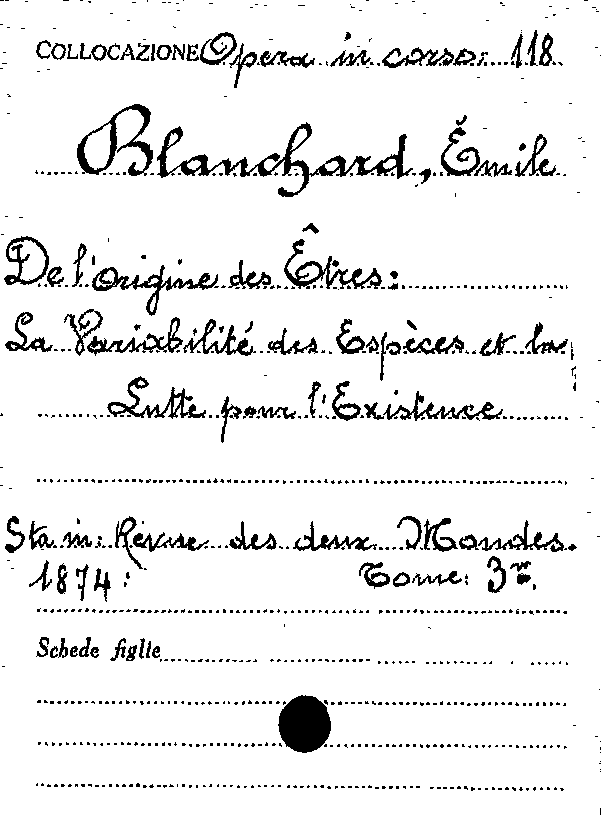 COLLOCAZIONE Opera in corso: 118
Blanchard, Émile
De l'origine des Êtres:
La Variabilité des Espèces et la
Lutte pour l'Existence
Sta in: Revue des deux Mondes.
1874: Tome: 3me.
Schede figlie